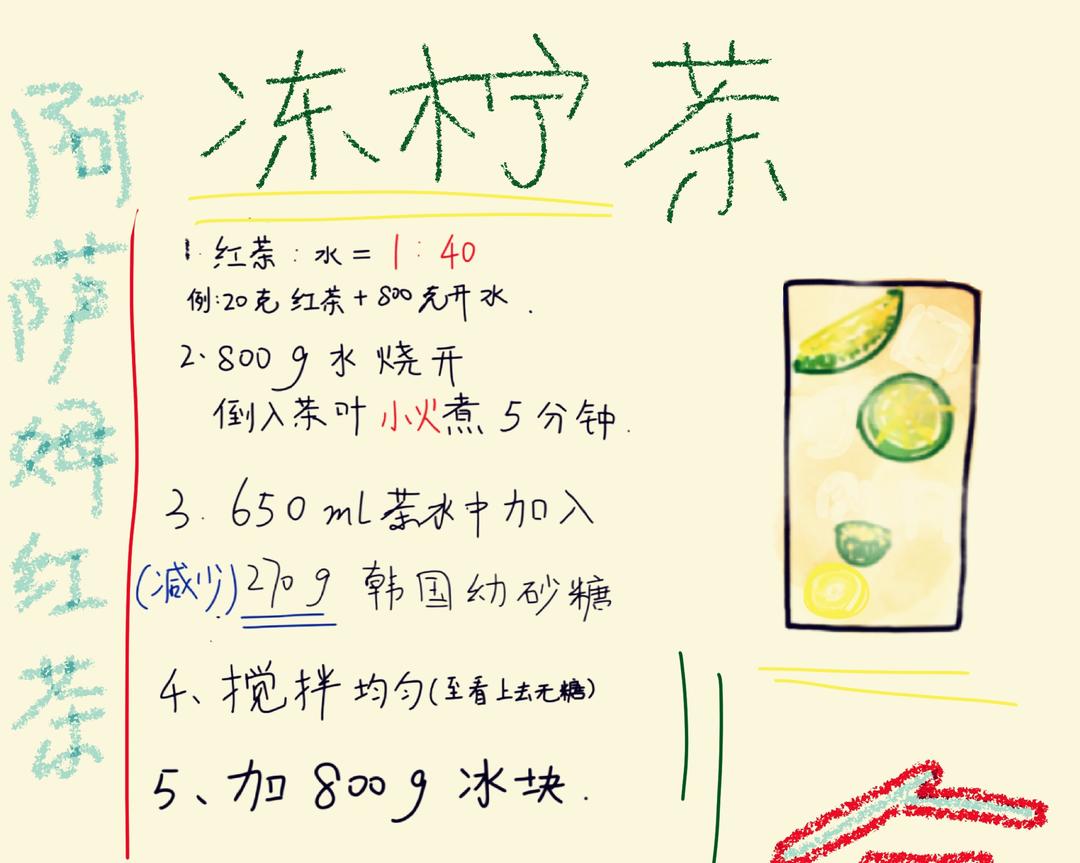 冻柠茶
阿萨姆红茶
1. 红茶:水=1:40
例:20克红茶+800克开水.
2.800g水烧开
倒入茶叶小火煮5分钟.
3. 650mL茶水中加入
(减少)270g 韩国幼砂糖
4、搅拌均匀(至看上去无糖)
5、加800g冰块.